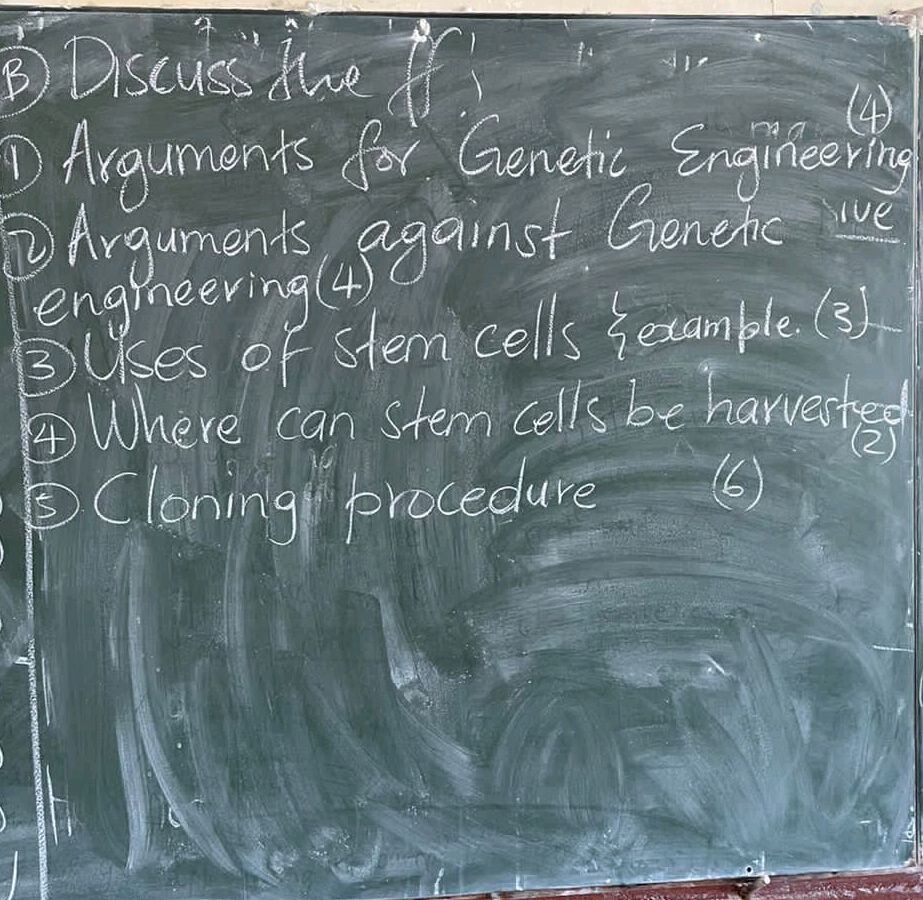 B Discuss the ff:
(4)
1 Arguments for Genetic Engineering
2 Arguments against Genetic ive
engineering (4)
3 Uses of stem cells & example. (3)
4 Where can stem cells be harvested
(2)
5 Cloning procedure (6)